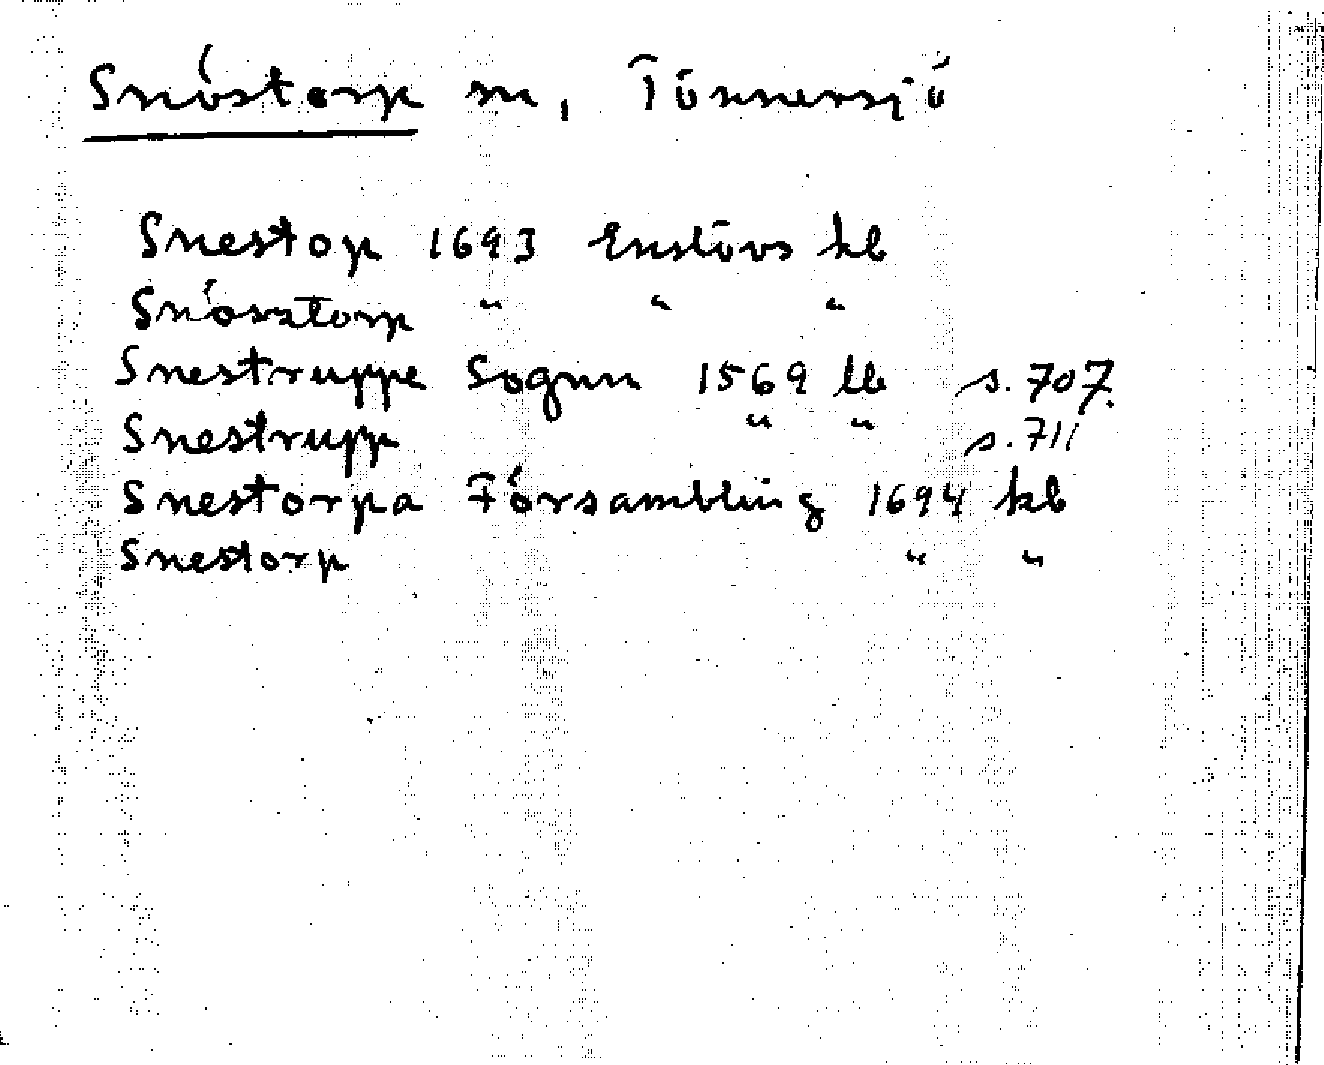 Snöstorp sn, Tönnersjö
Snestop 1693 Enslövs kb
Snörstorp " " "
Snestruppe Sognn 1569 lb s. 707.
Snestrupp " " s. 711
Snestorpa Försambling 1694 kb
Snestorp " "